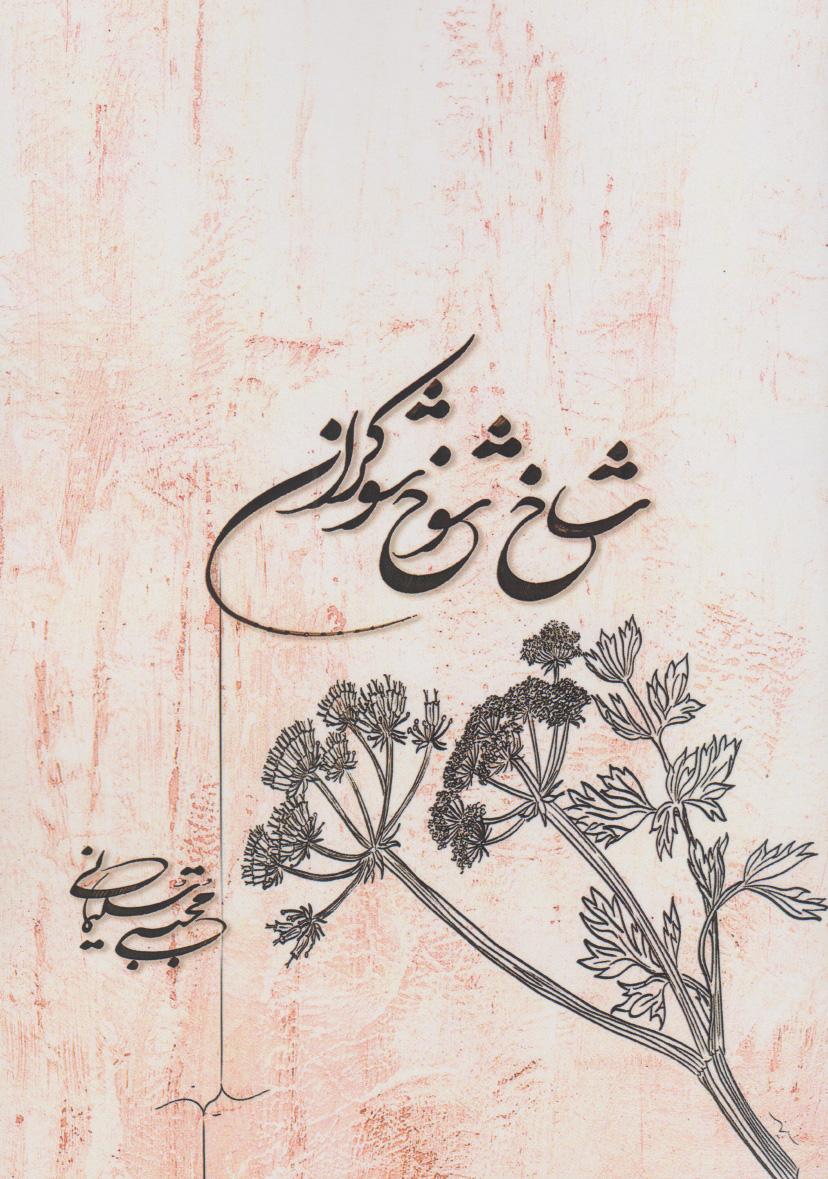 شاخ شوخ شوکران
مجتبی سلیمانی